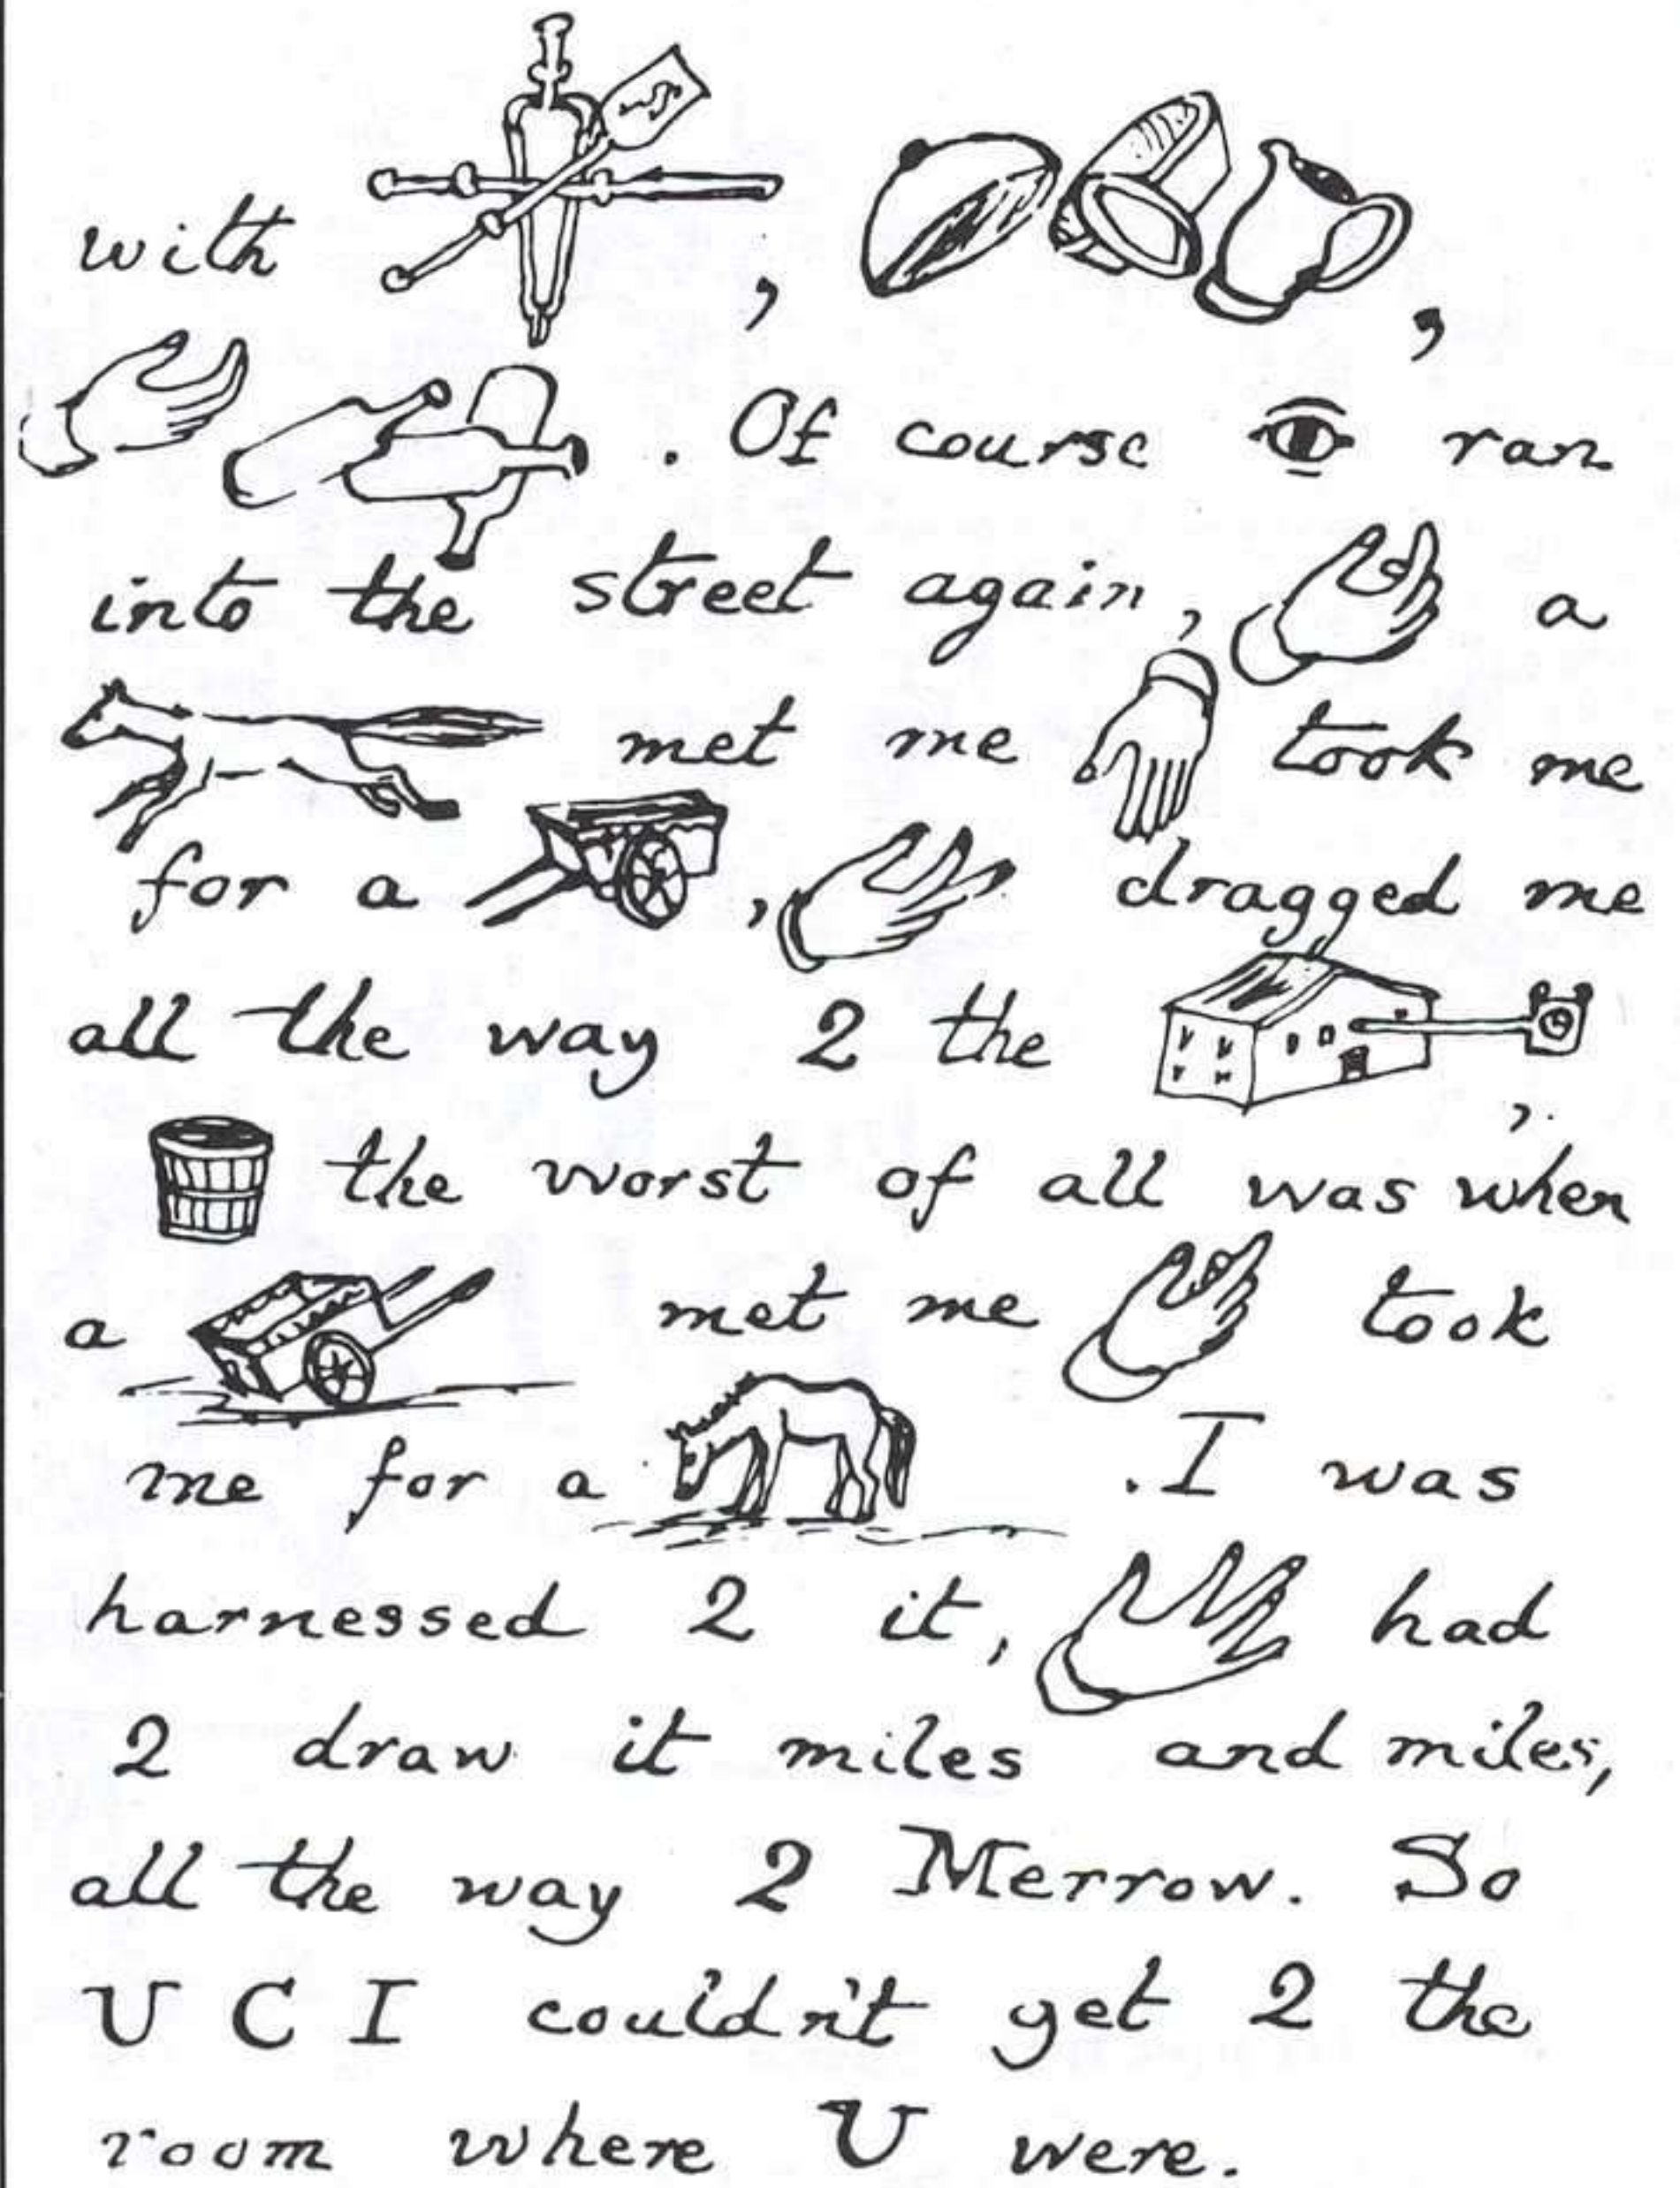 with , ,
. Of course ran
into the street again, a
met me took me
for a , dragged me
all the way 2 the ,
the worst of all was when
a met me took
me for a . I was
harnessed 2 it, had
2 draw it miles and miles,
all the way 2 Merrow. So
U C I couldn't get 2 the
room where U were.